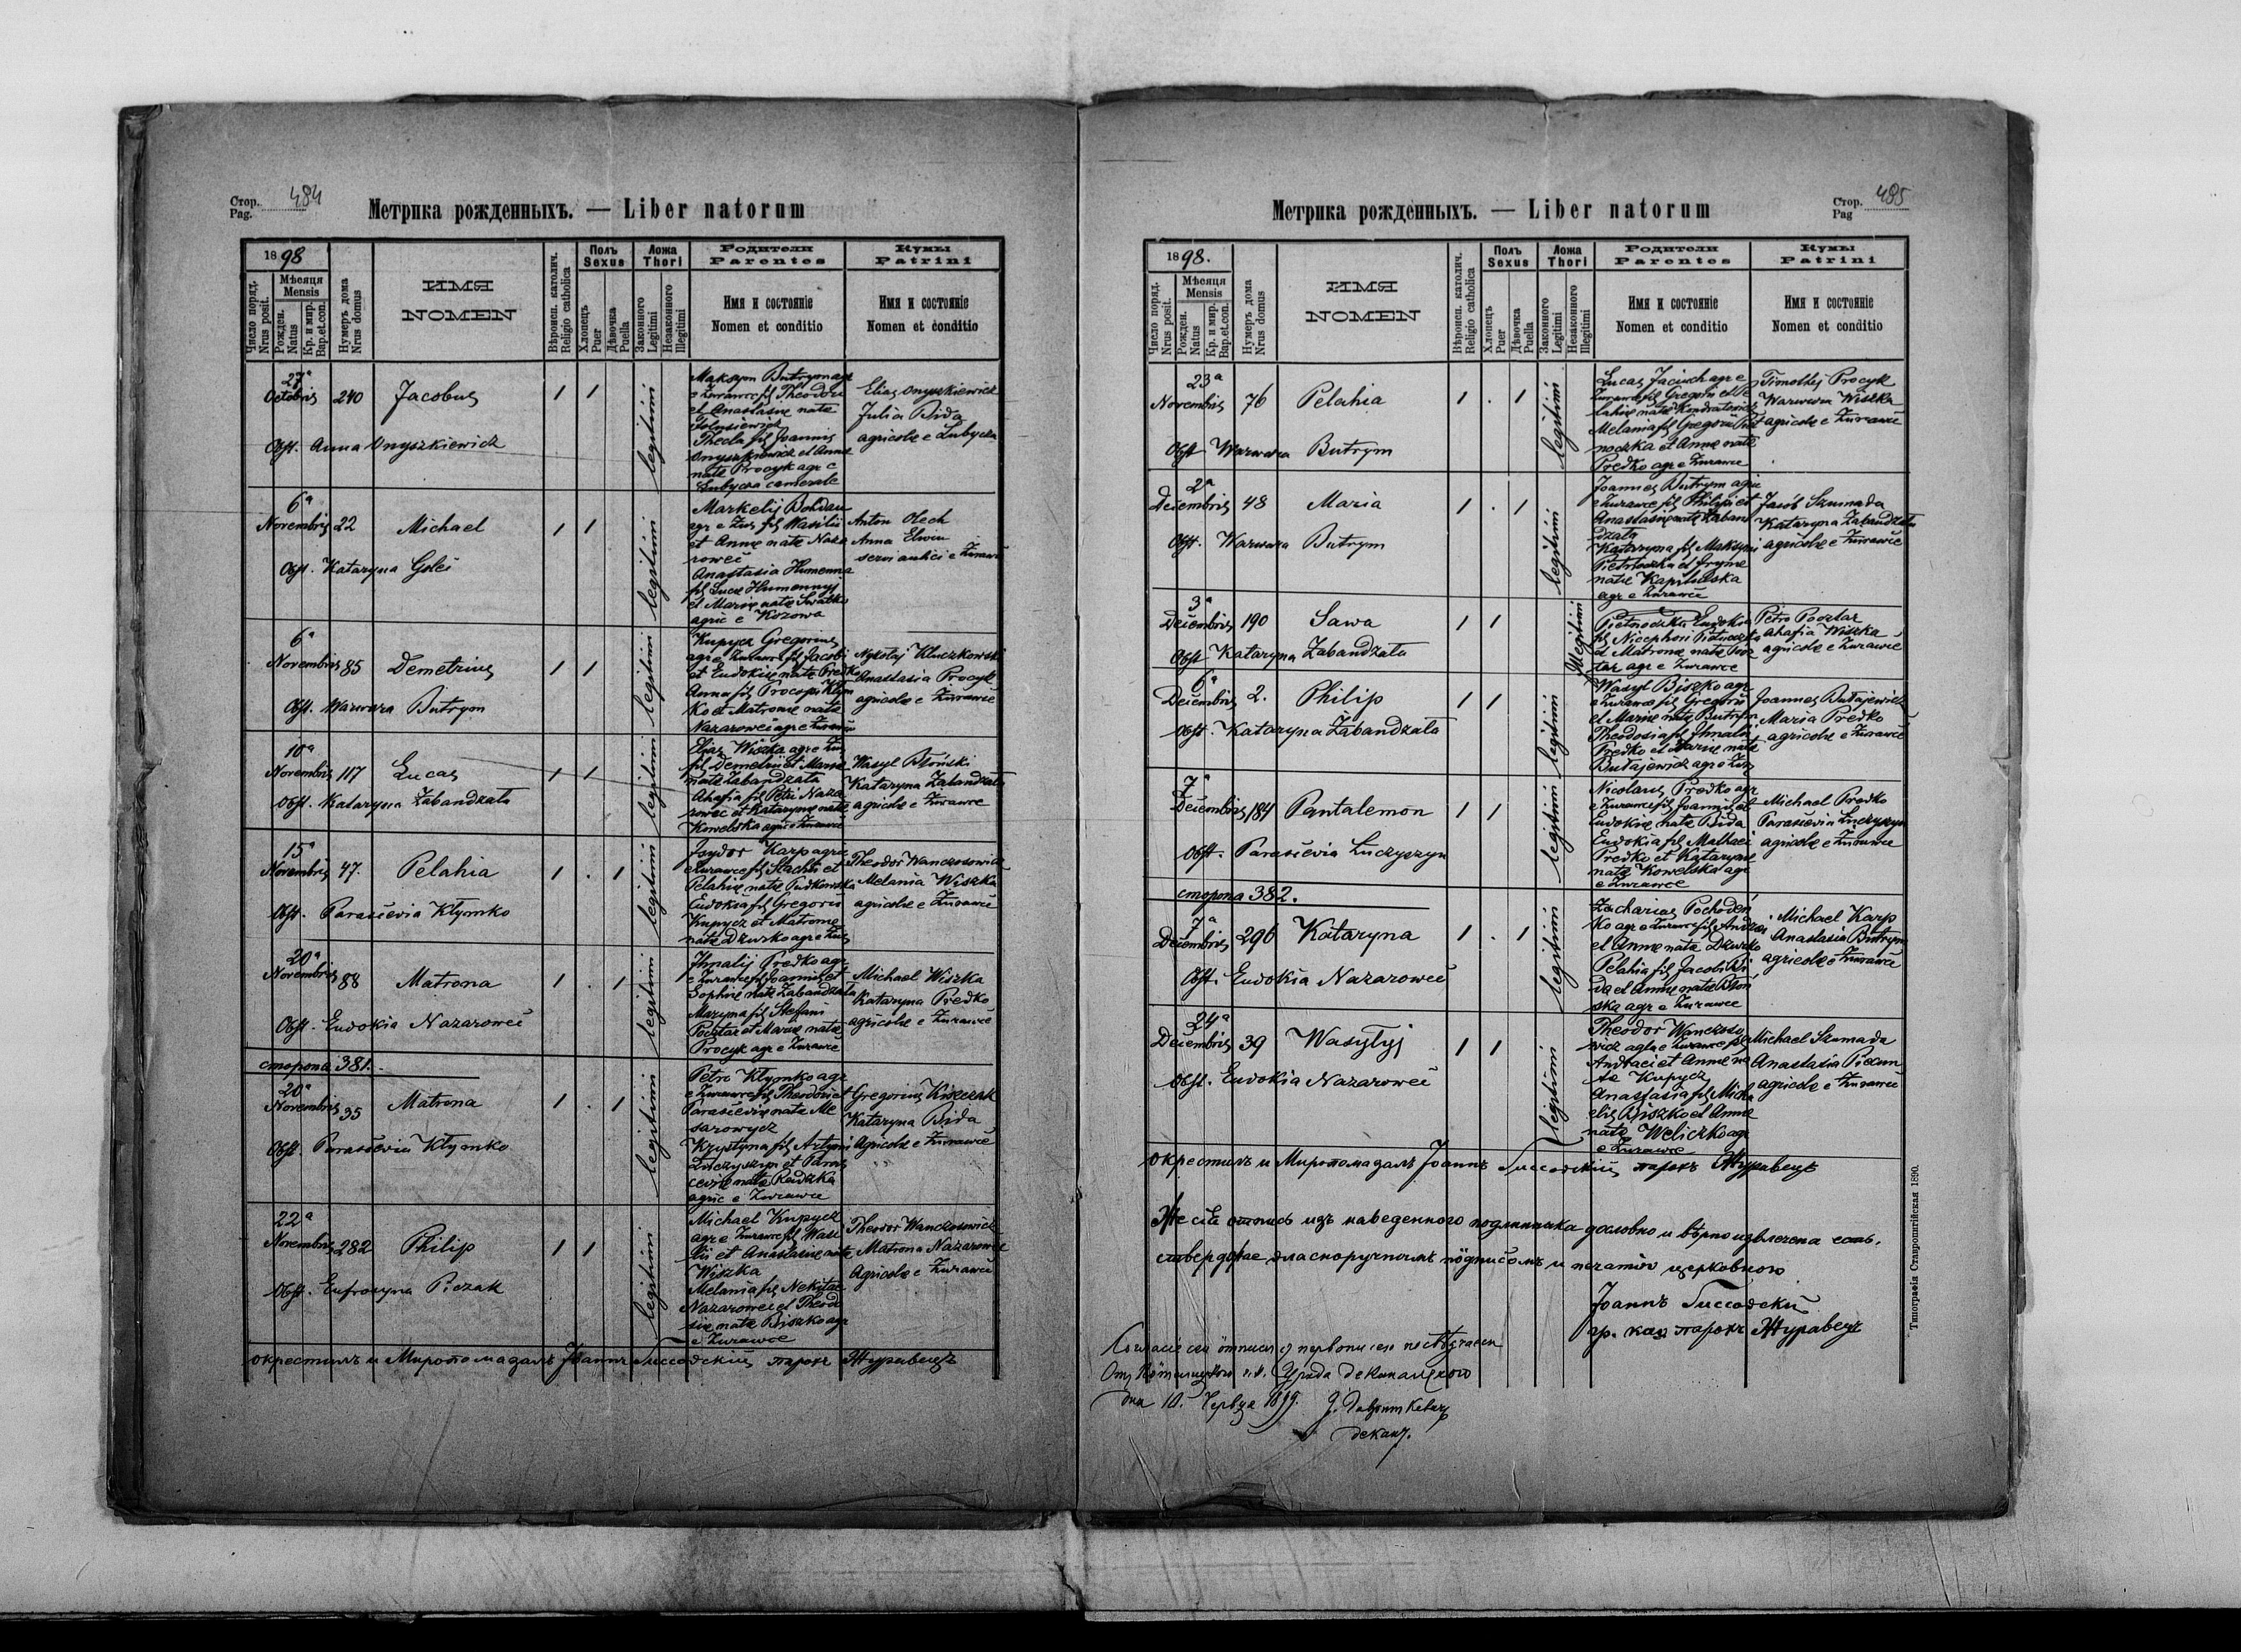 Стор.
Pag. 484
Метрика рожденныхъ. — Liber natorum
1898
Число поряд.
Nrus posit.
Мѣсяця
Mensis
Рожден.
Natus
Кр. и мир.
Bap.et.con.
Нумеръ дома
Nrus domus
ИМЯ
NOMEN
Вѣроисп. католич.
Religio catholica
Полъ
Sexus
Хлопецъ
Puer
Дѣвочка
Puella
Ложа
Thori
Законного
Legitimi
Незаконного
Illegitimi
Родители
Parentes
Имя и состояніе
Nomen et conditio
Кумы
Patrini
Имя и состояніе
Nomen et conditio
27ª
Octobris 240 Jacobus 1 1 legitimi
Obst. Anna Onyszkiewicz
Maksym Butrym agr
e Żurawce fil Theodori
et Anastasiæ natæ
Thecla fil Joannis
Onyszkiewicz et Annæ
natæ Procyk agr e
Lubycza camerale
Elias Onyszkiewicz
Julia Bida
agricolæ e Lubycza
6ª
Novembris 22 Michael 1 1 legitimi
Obst. Kataryna Goleś
Markelij Bohdan
agr e Żur fil Wasilii
et Annæ natæ Naza
roweć
Anastasia Humenna
fil Lucæ Humennyj
et Mariæ natæ
agric e Kozowa
Anton Olech
Anna
servi aulici e Żurawce
6ª
Novembris 85 Demetrius 1 1 legitimi
Obst. Warwara Butrym
Kupycz Gregorius
agr e Żurawce fil Jacobi
et Eudokiæ natæ Predko
Anna fil Procopii Kłym
ko et Matronæ natæ
Nazaroweć agr e Żurawce
Nykołaj Kluczkowski
Anastasia Procyk
agricolæ e Żurawce
10ª
Novembris 117 Lucas 1 1 legitimi
Obst. Kataryna Żabandżała
Elias Wiszka agr e Żur
fil Demetrii et Mariæ
natæ Żabandżała
Ahafia fil Petri Naza
roweć et Katarynæ natæ
Kowelska agr e Żurawce
Wasyl Błoński
Kataryna Żabandżała
agricolæ e Żurawce
15ª
Novembris 47. Pelahia 1 . 1 legitimi
Obst. Parasćevia Kłymko
Isydor Karp agr
e Żurawce fil Stachii et
Pelahiæ natæ Pudkowska
Eudokia fil Gregorii
Kupycz et Matronæ
natæ Dżurko agr e Żur
Theodor Wanczosowicz
Melania Wiszka
agricolæ e Żurawce
20ª
Novembris 88 Matrona 1 . 1 legitimi
Obst. Eudokia Nazaroweć
Ihnatij Predko agr
e Żurawce fil Joannis et
Sophiæ natæ Żabandżała
Maryna fil Stefani
Pocztar et Mariæ natæ
Procyk agr e Żurawce
Michael Wiszka
Kataryna Predko
agricolæ e Żurawce
сторона 381.
20ª
Novembris 35 Matrona 1 . 1 legitimi
Obst Parasćevia Kłymko
Petro Kłymko agr
e Żurawce fil Theodori et
Parasćeviæ natæ Me
sarowycz
Krystyna fil Artymi
Łuczyszyn et Paras
ceviæ natæ
agric e Żurawce
Gregorius
Kataryna Bida
Agricolæ e Żurawce
22ª
Novembris 282 Philip 1 1 legitimi
Obst. Eufrosyna Piczak
Michael Kupycz
agr e Żurawce fil Wasi
lii et Anastasiæ natæ
Wiszka
Melania fil Nekitæ
Nazaroweć et Theodo
siæ natæ Biszko agr
e Żurawce
Theodor Wanczosowicz
Matrona Nazaroweć
Agricolæ e Żurawce
окрестилъ и Миропомазалъ Іоаннъ парохъ Журавецъ
Стор.
Pag 485
Метрика рожденныхъ. — Liber natorum
1898.
Число поряд.
Nrus posit.
Мѣсяця
Mensis
Рожден.
Natus
Кр. и мир.
Bap.et.con.
Нумеръ дома
Nrus domus
ИМЯ
NOMEN
Вѣроисп. католич.
Religio catholica
Полъ
Sexus
Хлопецъ
Puer
Дѣвочка
Puella
Ложа
Thori
Законного
Legitimi
Незаконного
Illegitimi
Родители
Parentes
Имя и состояніе
Nomen et conditio
Кумы
Patrini
Имя и состояніе
Nomen et conditio
23ª
Novembris 76 Pelahia 1 . 1 legitimi
Obst Warwara Butrym
Lucas Jaciuch agr e
Żurawce fil Gregorii et Pe
lahiæ natæ Kondratowicz
Melania fil Gregorii Piet
noczka et Annæ natæ
Predko agr e Żurawce
Timothej Procyk
Warwara Wiszka
agricolæ e Żurawce
2ª
Decembris 48 Maria 1 . 1 legitimi
Obst. Warwara Butrym
Joannes Butrym agr
e Żurawce fil Philipi et
Anastasiæ natæ Żaban
dżała
Kataryna fil Maksymi
Pietnoczka et Irynæ
natæ
agr e Żurawce
Jacob Szumada
Kataryna Żabandżała
agricolæ e Żurawce
3ª
Decembris 190 Sawa 1 1 Illegitimi
Obst Kataryna Żabandżała
Pietnoczka Eudokia
fil Nicephori Pietnoczka
et Matronæ natæ Pocz
tar agr e Żurawce
Petro Pocztar
Ahafia Wiszka
agricolæ e Żurawce
6ª
Decembris 2. Philip 1 1 legitimi
Obst. Kataryna Żabandżała
Wasyl Biszko agr
e Żurawce fil Gregorii
et Mariæ natæ Butrym
Theodosia fil Ihnatii
Predko et Mariæ natæ
Bułajewicz agr e Żur
Joannes Bułajewicz
Maria Predko
agricolæ e Żurawce
7ª
Decembris 184 Pantalemon 1 1 legitimi
Obst. Parasćevia Łuczyszyn
Nicolaus Predko agr
e Żurawce fil Joannis et
Eudokiæ natæ Bida
Eudokia fil Mathaei
Predko et Katarynæ
natæ Kowelska agr
e Żurawce
Michael Predko
Parasćevia Łuczyszyn
agricolæ e Żurawce
сторона 382.
7ª
Decembris 296 Kataryna 1 . 1 legitimi
Obst. Eudokia Nazaroweć
Zacharias Pochodeń
ko agr e Żurawce fil Andreæ
et Annæ natæ Dżurko
Pelahia fil Jacobi Bi
da et Annæ natæ Błoń
ska agr e Żurawce
Michael Karp
Anastasia Butrym
agricolæ e Żurawce
24ª
Decembris 39 Wasylyj 1 1 legitimi
Obst. Eudokia Nazaroweć
Theodor Wanczoso
wicz agr e Żurawce fil
Andreæ et Annæ na
tæ Kupycz
Anastasia fil Micha
elis Biszko et Annæ
natæ Weliczko agr
e Żurawce
Michael Szumada
Anastasia
agricolæ e Żurawce
окрестилъ и Миропомазалъ Іоаннъ парохъ Журавецъ
Же сія отпись изъ наведенного подлинника дословно и вѣрно извлечена есть,
ствердждае власноручнымъ подписомъ и печатію церковною
Іоаннъ
гр. кат парохъ Журавецъ
деканального
дня 10. Червця 1899.
деканъ.
Типографія Ставропигійская 1890.